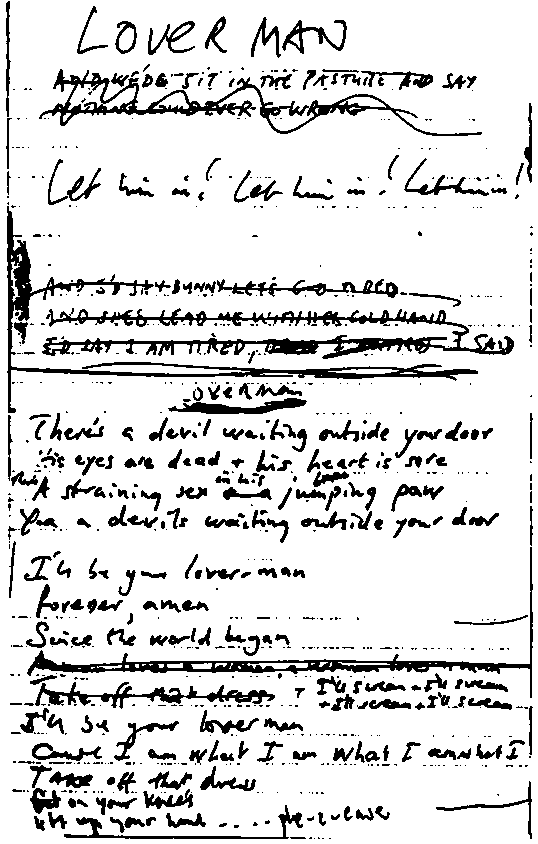 LOVER MAN
AND WE'DE SIT IN THE PASTURE AND SAY
NOTHING COULD EVER GO WRONG
Let him in! Let him in! Let him in!
AND I'D SAY BUNNY LETS GO TO BED
AND SHED LEAD ME WITH HER COLD HAND
I'D SAY I AM TIRED, I SAID
LOVERMAN
There's a devil waiting outside your door
His eyes are dead + his heart is sore
A straining sex in his jumping paw
Yea a devils waiting outside your door
I'll be your lover-man
forever, amen
Since the world began
loves a woman, a woman loves a man
Take off that dress + I'll scream + I'll scream
+ I'll scream + I'll scream
I'll be your lover man
Cause I am what I am what I am what I
Take off that dress
Get on your knees
lift up your